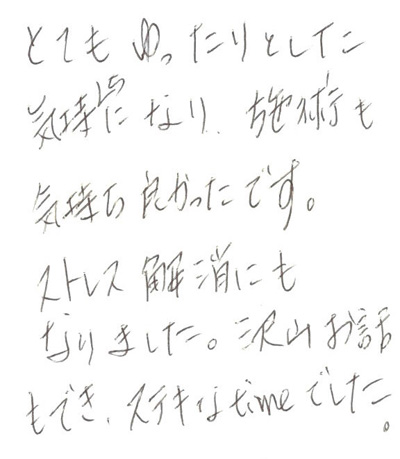 とてもゆったりとした
気持ちになり、施術も
気持ち良かったです。
ストレス解消にも
なりました。沢山お話
もでき、ステキなtimeでした。